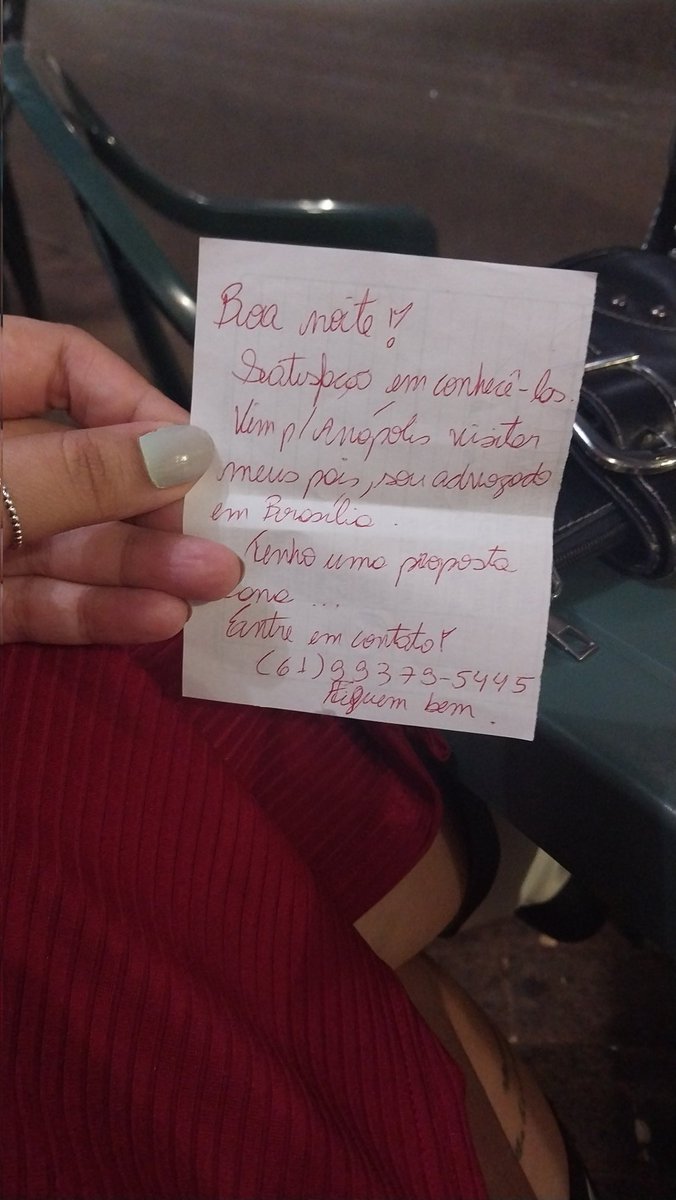 Boa noite!
Satisfação em conhecê-los.
Vim p/ Anápolis visitar
meus pais, sou advogado
em Brasília.
Tenho uma proposta
...
Entre em contato!
(61) 99379-5445
Fiquem bem.